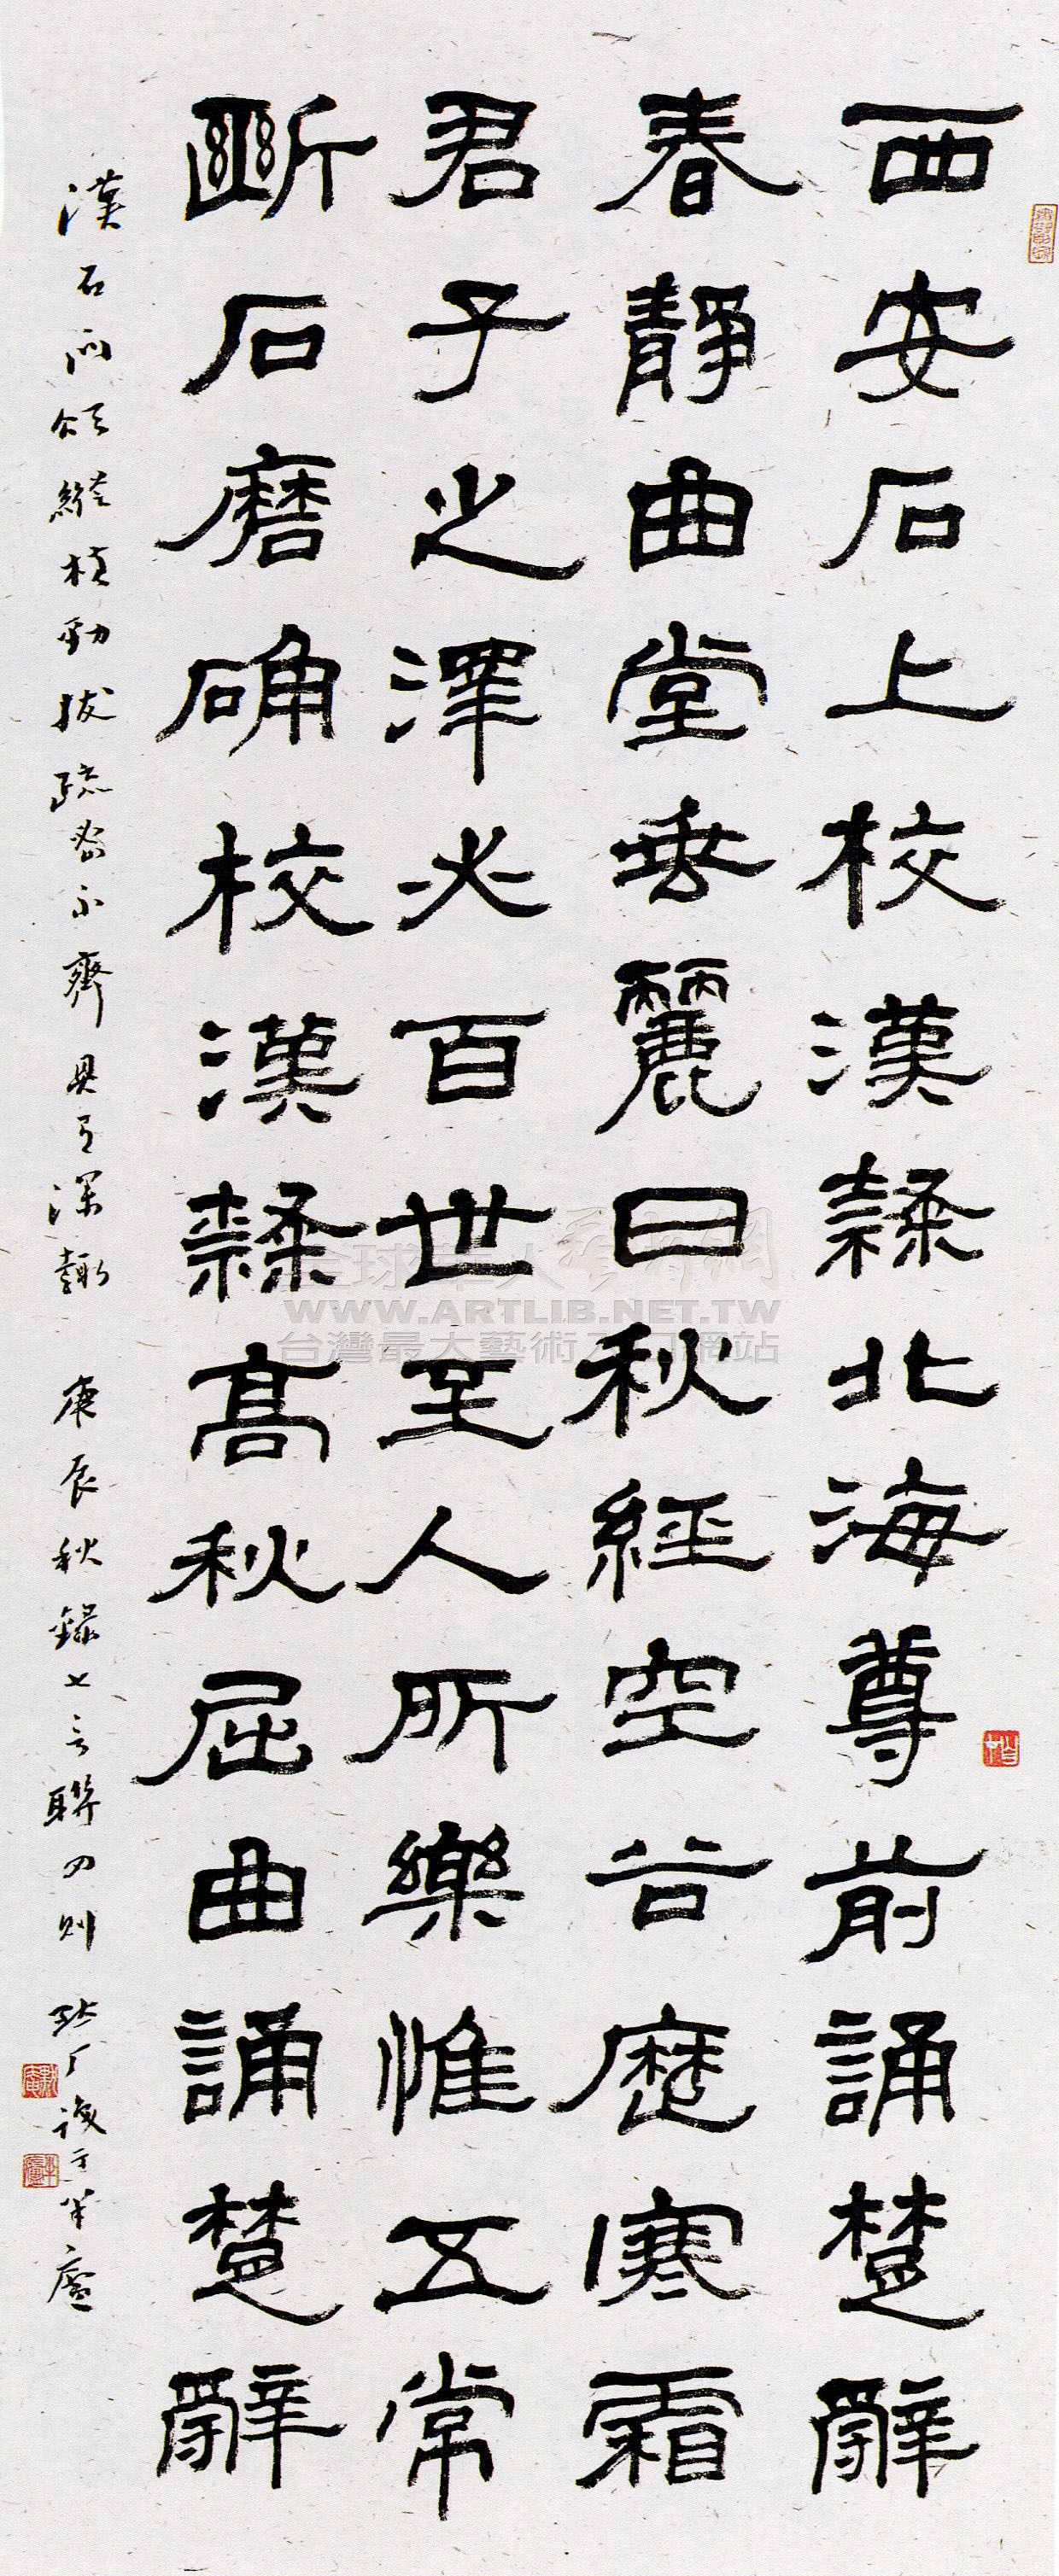 西安石上校漢隸北海尊前誦楚辭
春靜曲堂垂麗日秋經空谷歷寒霜
君子之澤必百世至人所樂惟五常
斷石磨确校漢隸高秋屈曲誦楚辭
漢石門頌縱橫勁拔疏密不齊具有深趣 庚辰秋錄七言聯四則 半廬
WWW.ARTLIB.NET.TW
台灣最大藝術入口網站